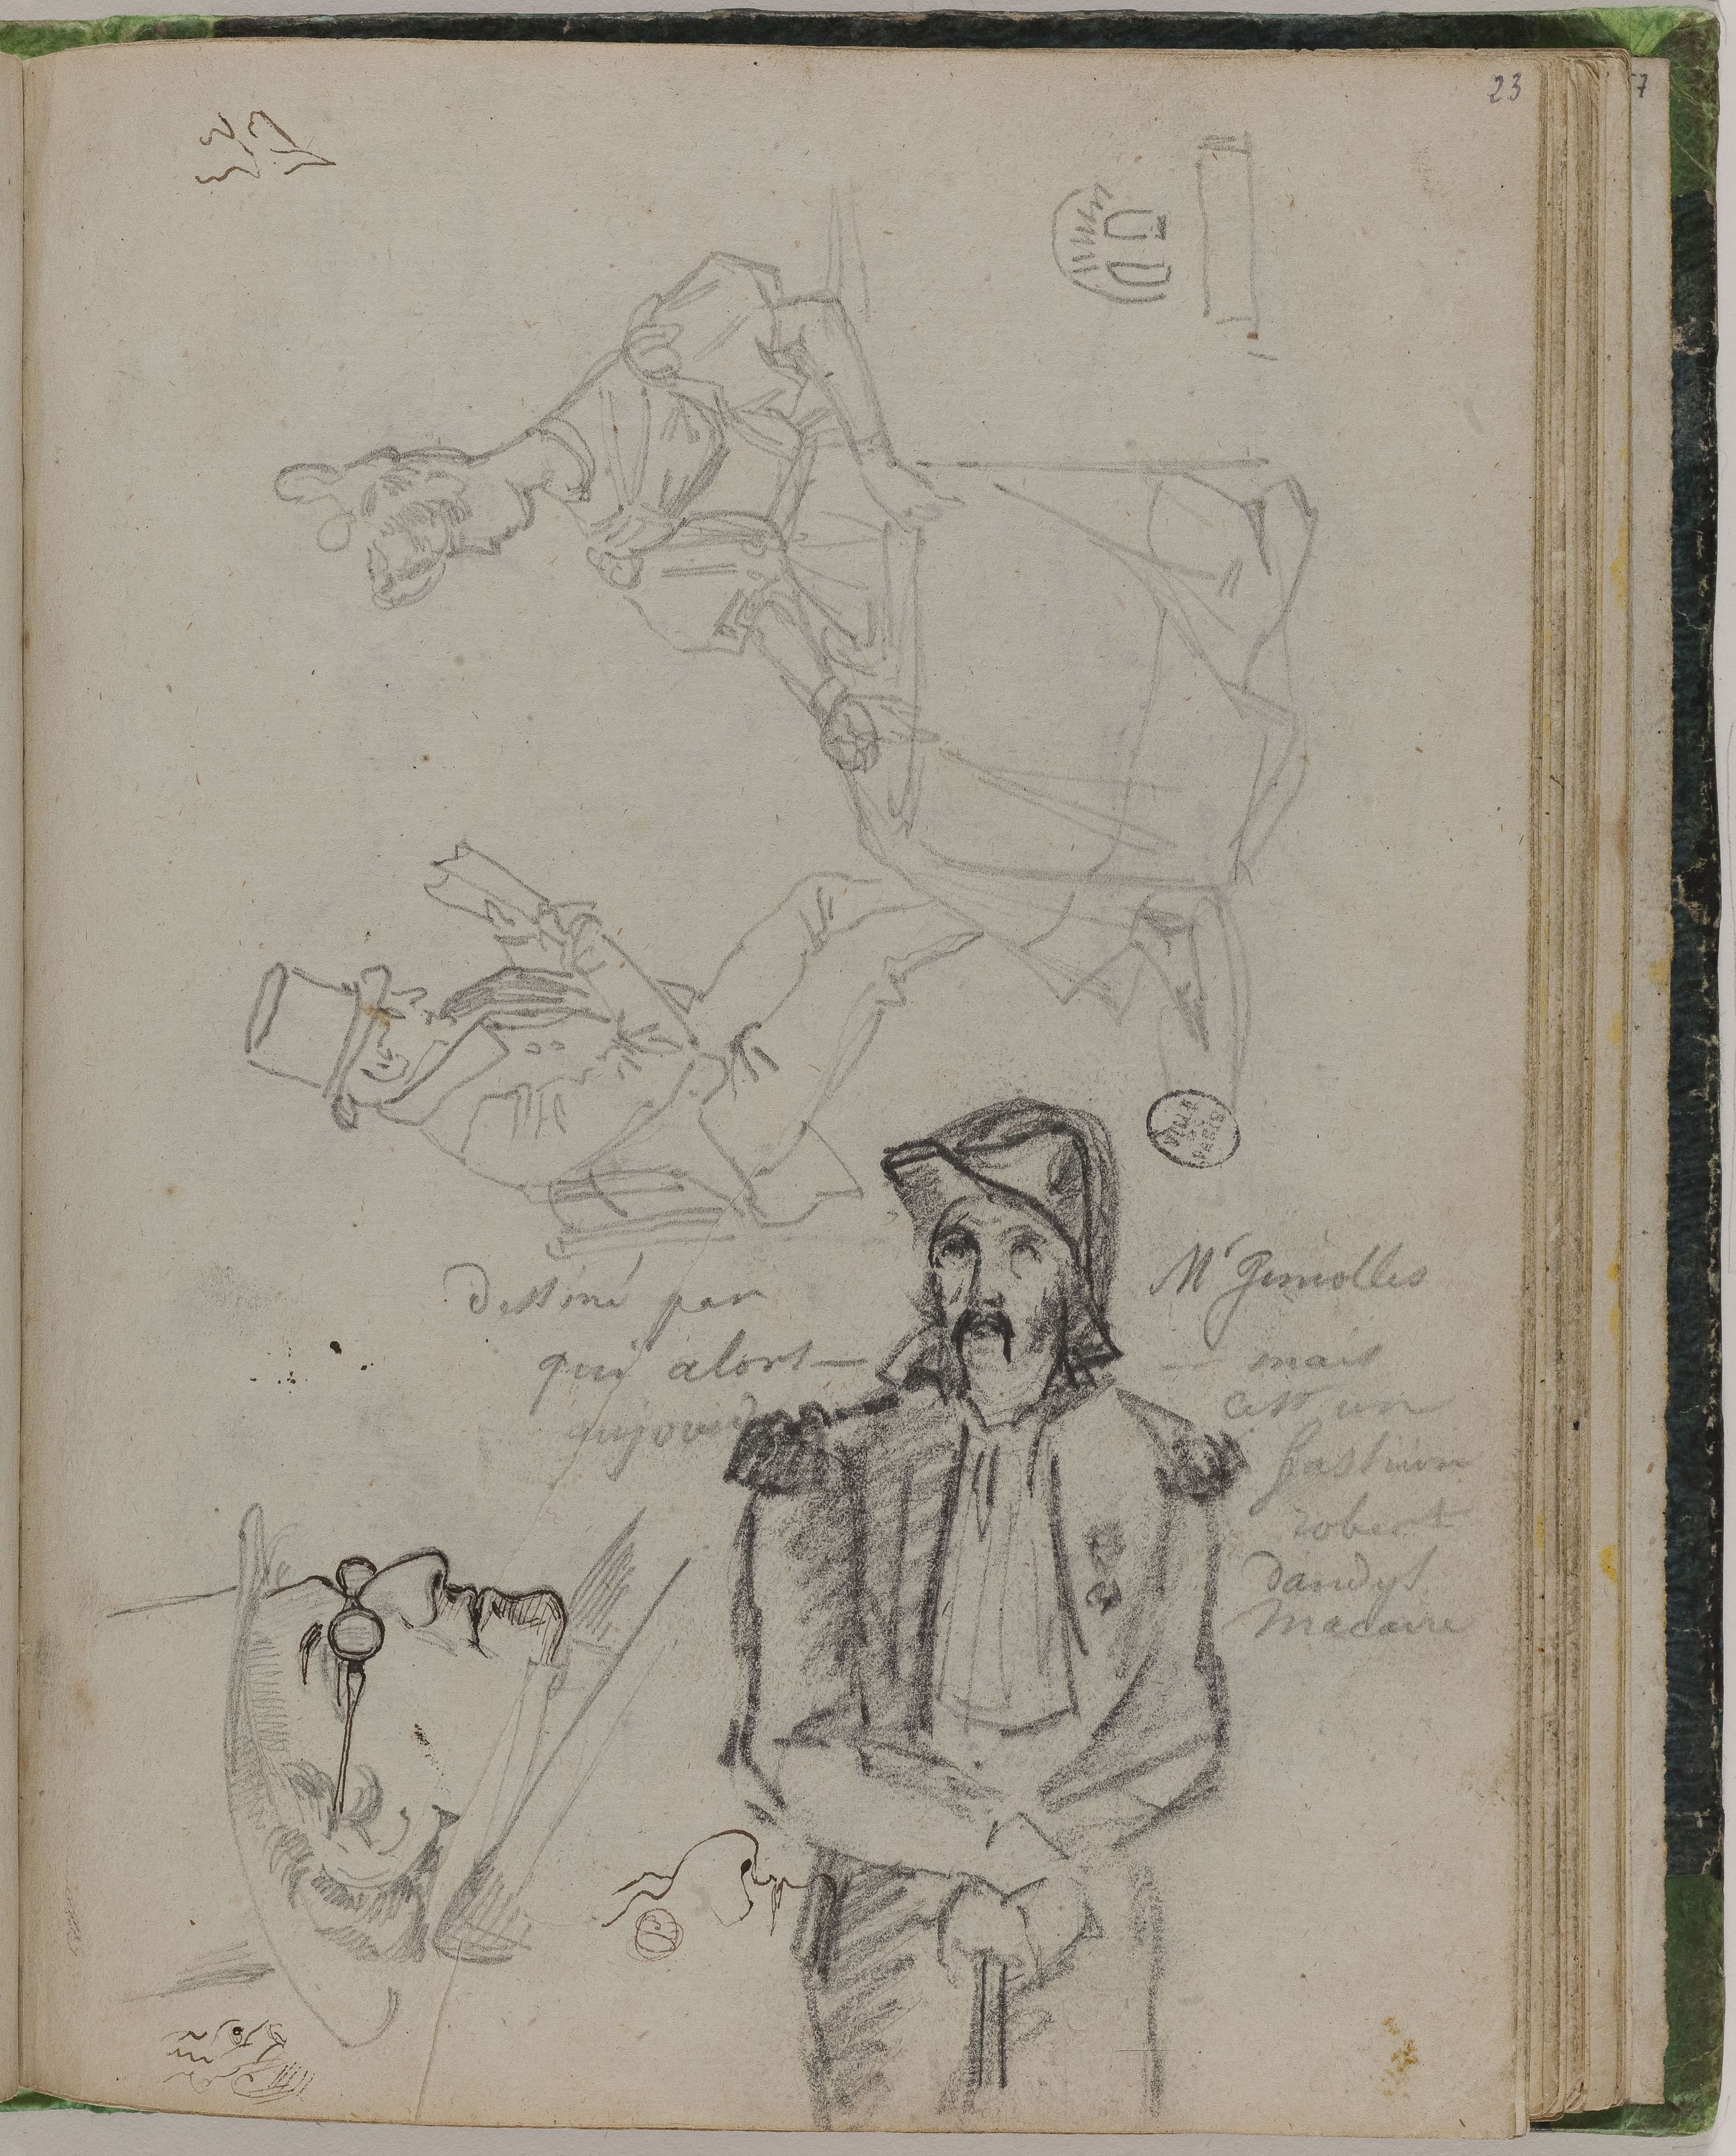 23
57
VILLE
DE
PARIS
dessiné par Mr Geniolles
qui alors — — mais
aujourd c'est un
fashion
robert
dandys
macaire